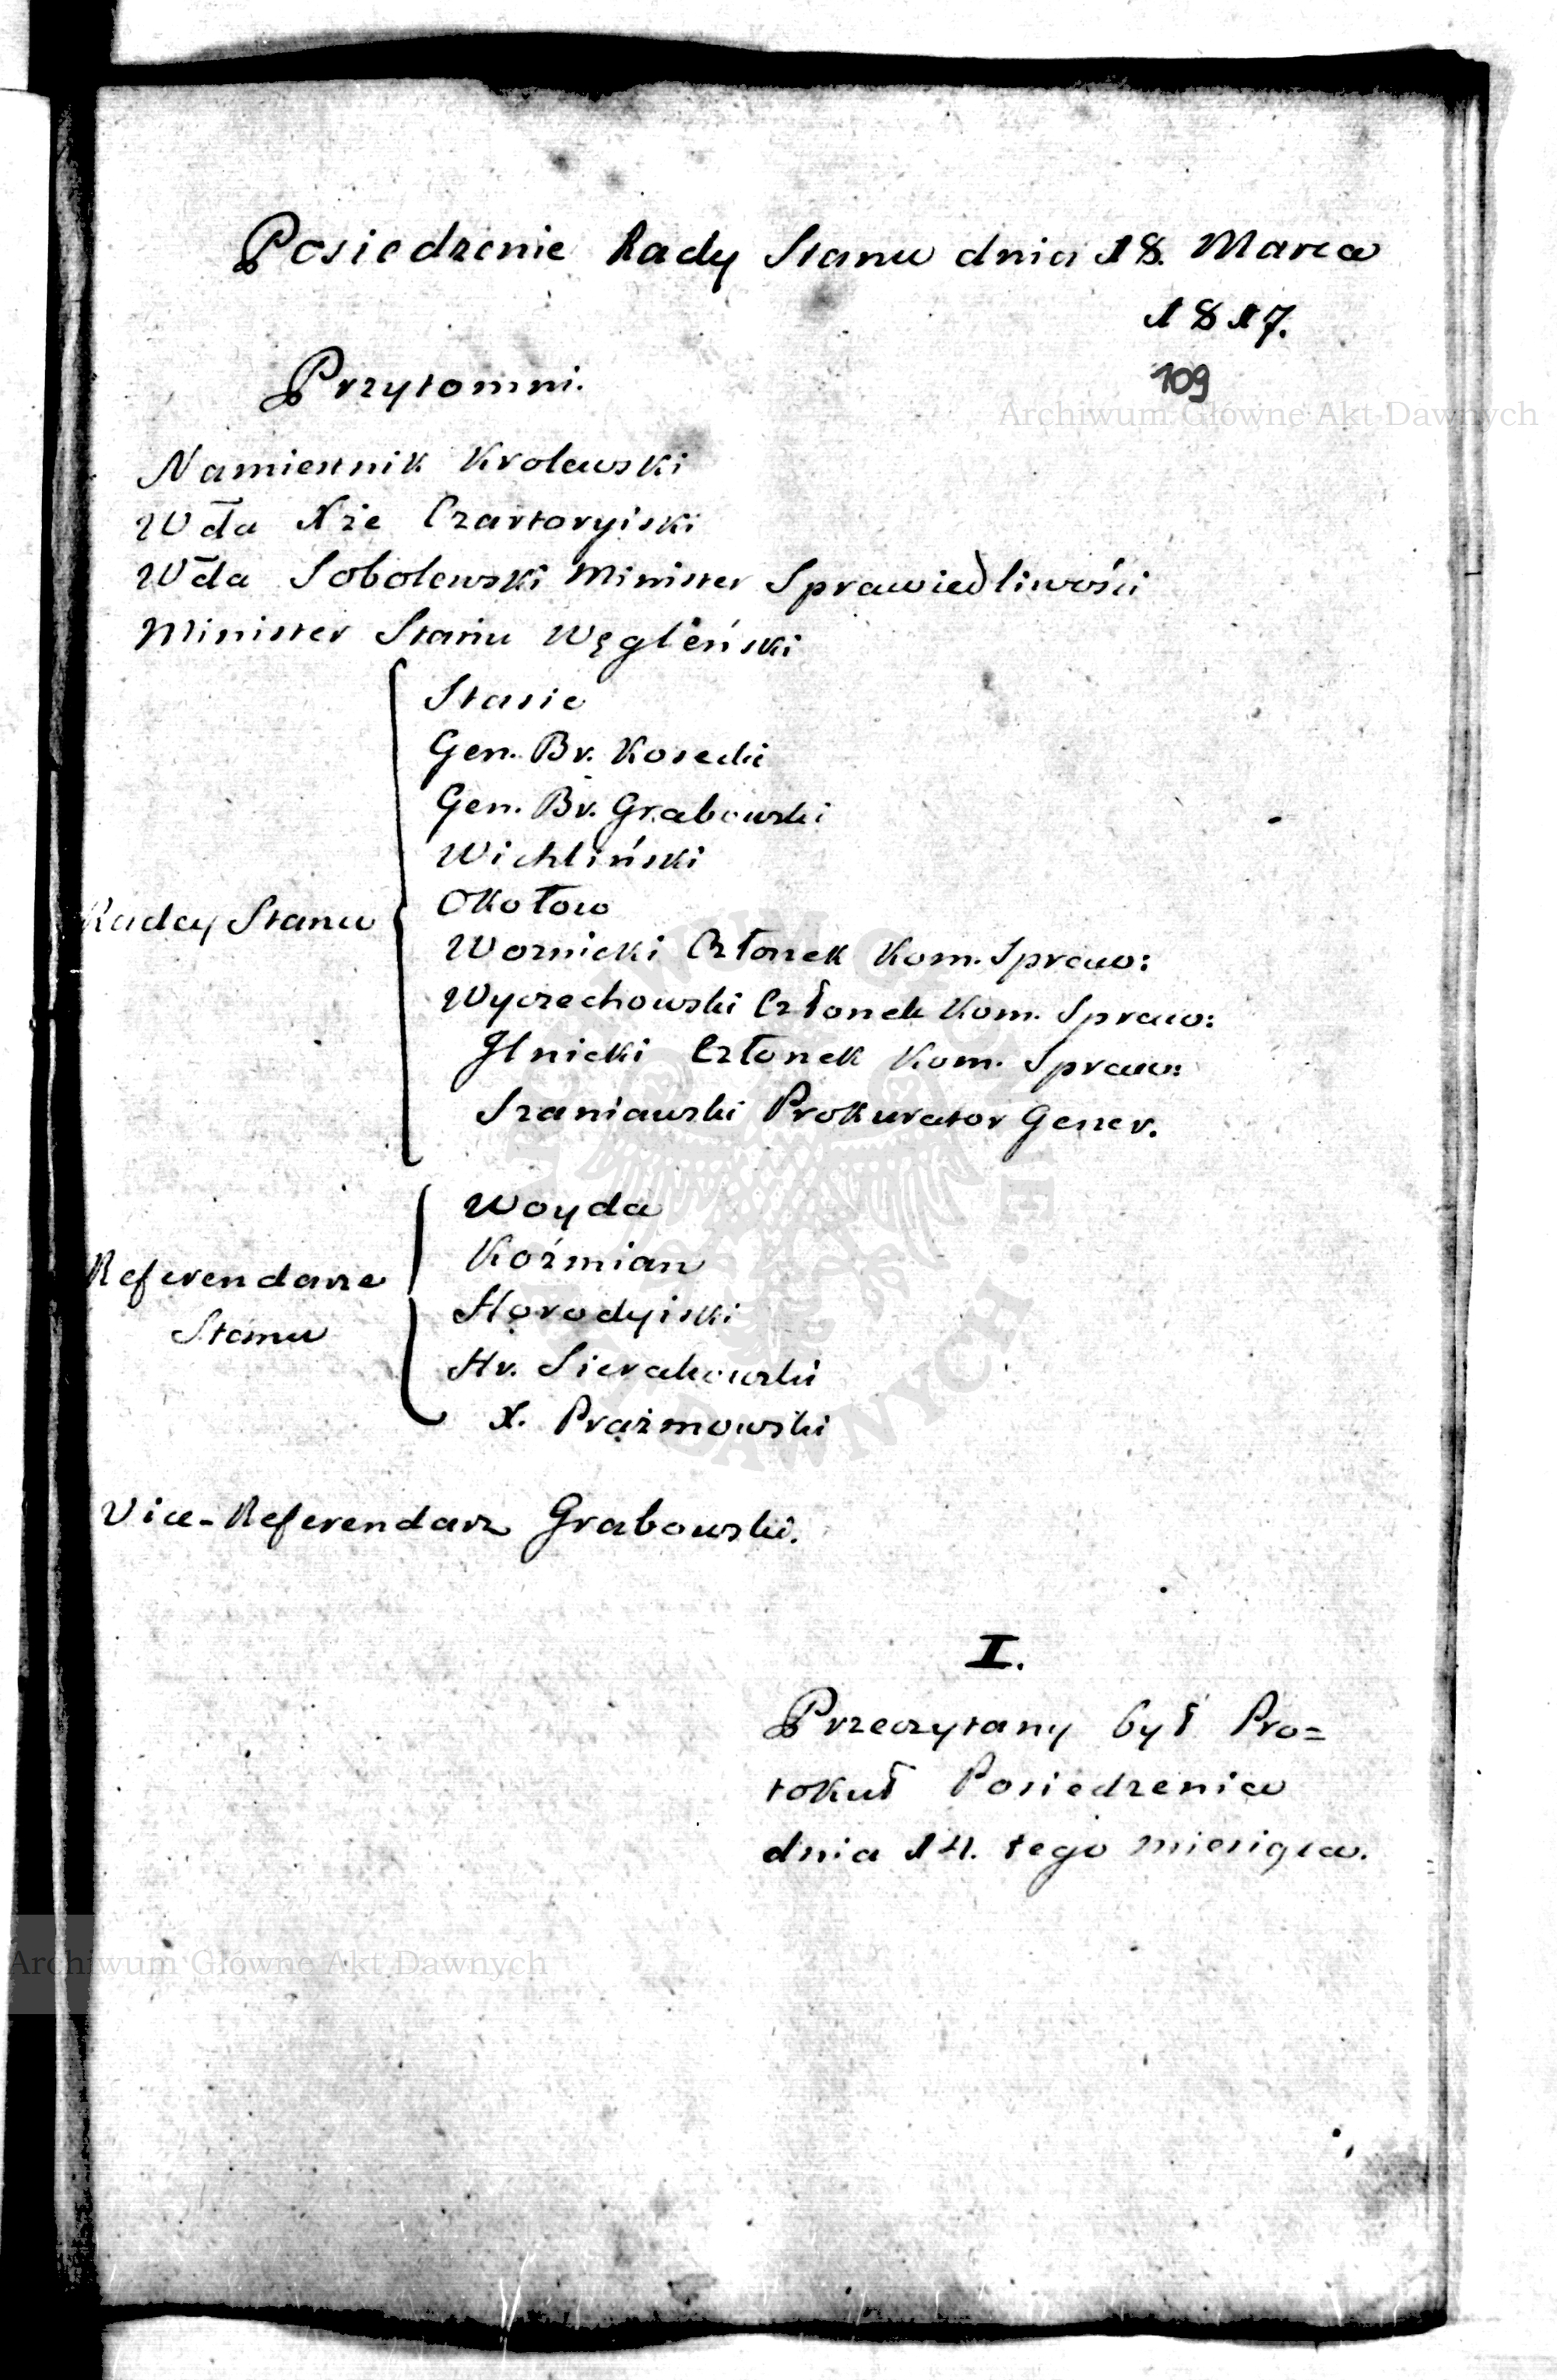 Posiedzenie Rady Stanu dnia 18. Marca
1817.
109
Archiwum Główne Akt Dawnych
Przytomni.
Namiestnik Krolewski
Wda Xże Czartoryiski
Wda Sobolewski Minister Sprawiedliwości
Minister Stanu Węgleński
Radcy Stanu
Stasic
Gen. Br. Kosecki
Gen. Br. Grabowski
Wichliński
Okołow
Woznicki Członek Kom. Spraw:
Wyczechowski Członek Kom. Spraw:
Jlnicki Członek Kom. Spraw:
Szaniawski Prokurator Gener.
Referendarze
Stanu
Woyda
Koźmian
Horodyiski
Hr. Sierakowski
X. Prażmowski
Vice-Referendarz Grabowski.
I.
Przeczytany był Pro=
tokuł Posiedzenia
dnia 14. tego miesiąca.
Archiwum Główne Akt Dawnych